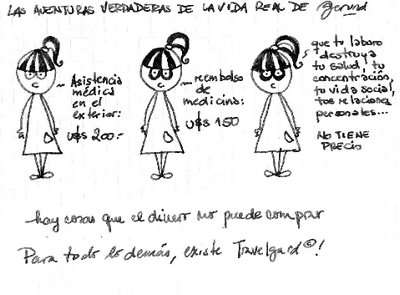 LAS AVENTURAS VERDADERAS DE LA VIDA REAL DE
Asistencia
médica
en el
exterior:
U$S 200.-
reembolso
de
medicina:
U$S 150
que tu laboro
destruya
tu salud, tu
concentración,
tu vida social,
tus relaciones
personales...
NO TIENE
PRECIO
hay cosas que el dinero no puede comprar
Para todo lo demás, existe Travelgard©!